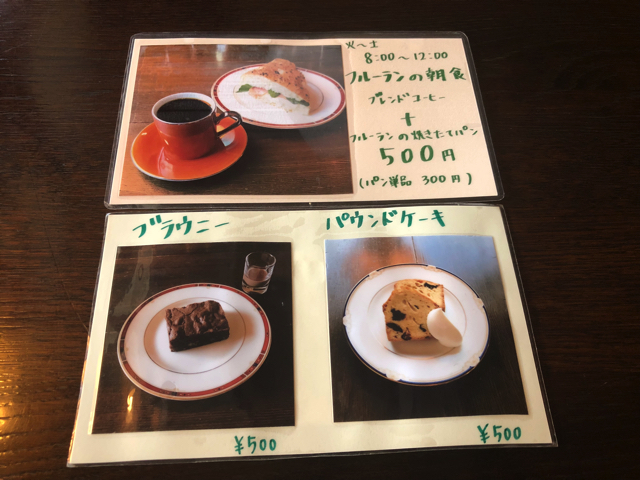 火〜土
8:00〜12:00
フルーランの朝食
ブレンドコーヒー
+
フルーランの焼きたてパン
500円
(パン単品 300円)
ブラウニー
パウンドケーキ
¥500
¥500